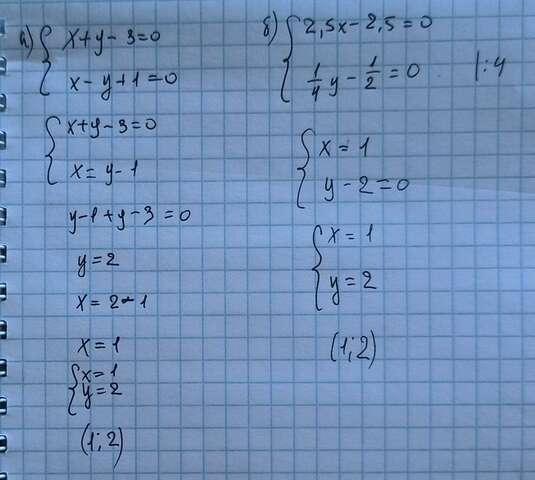 а) { x+y-3=0
x-y+1=0
{ x+y-3=0
x=y-1
y-1+y-3=0
y=2
x=2-1
x=1
{ x=1
y=2
(1;2)
б) { 2,5x-2,5=0
1/4 y - 1/2 = 0 |:4
{ x=1
y-2=0
{ x=1
y=2
(1;2)